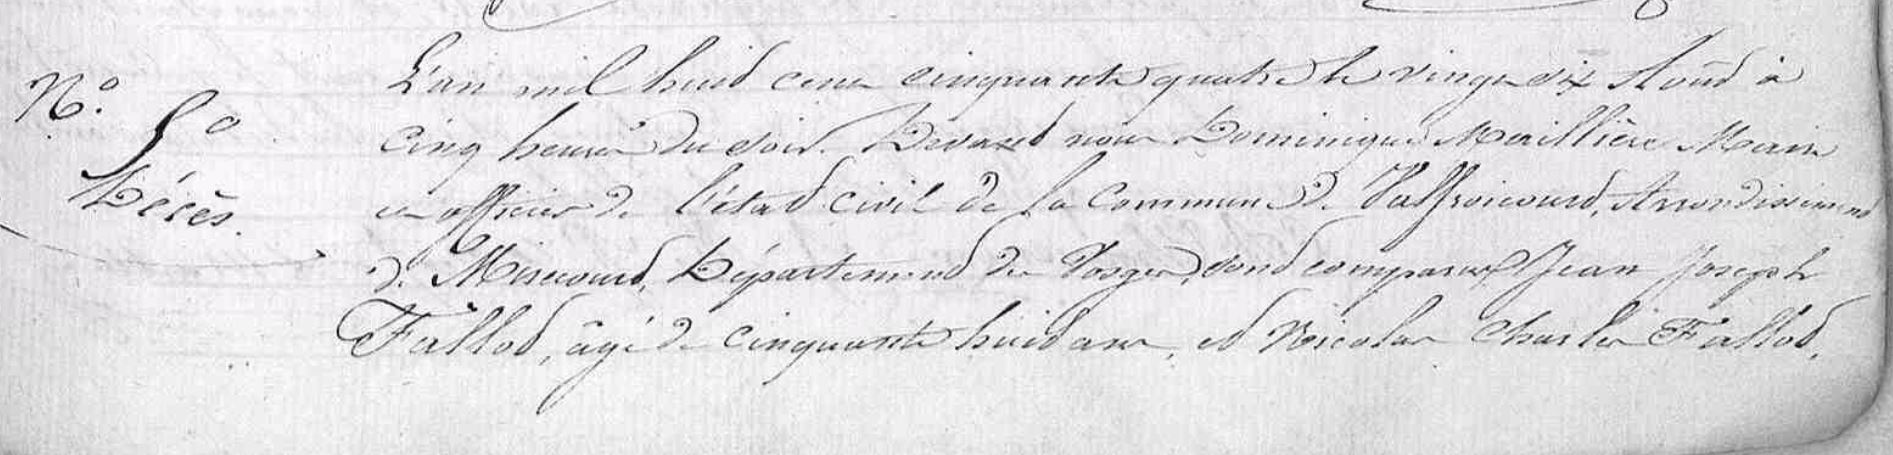 N.° 50
Décès.
L'an mil huit cent cinquante quatre le vingt six Août à
cinq heures du soir. Devant nous Dominique Maillière Maire
et officier de l'état civil de la Commune de Valfroicourt, Arrondissement
de Mirecourt, Département des Vosges, sont comparus Jean Joseph
Fallot, âgé de cinquante huit ans, et Nicolas Charles Fallot,